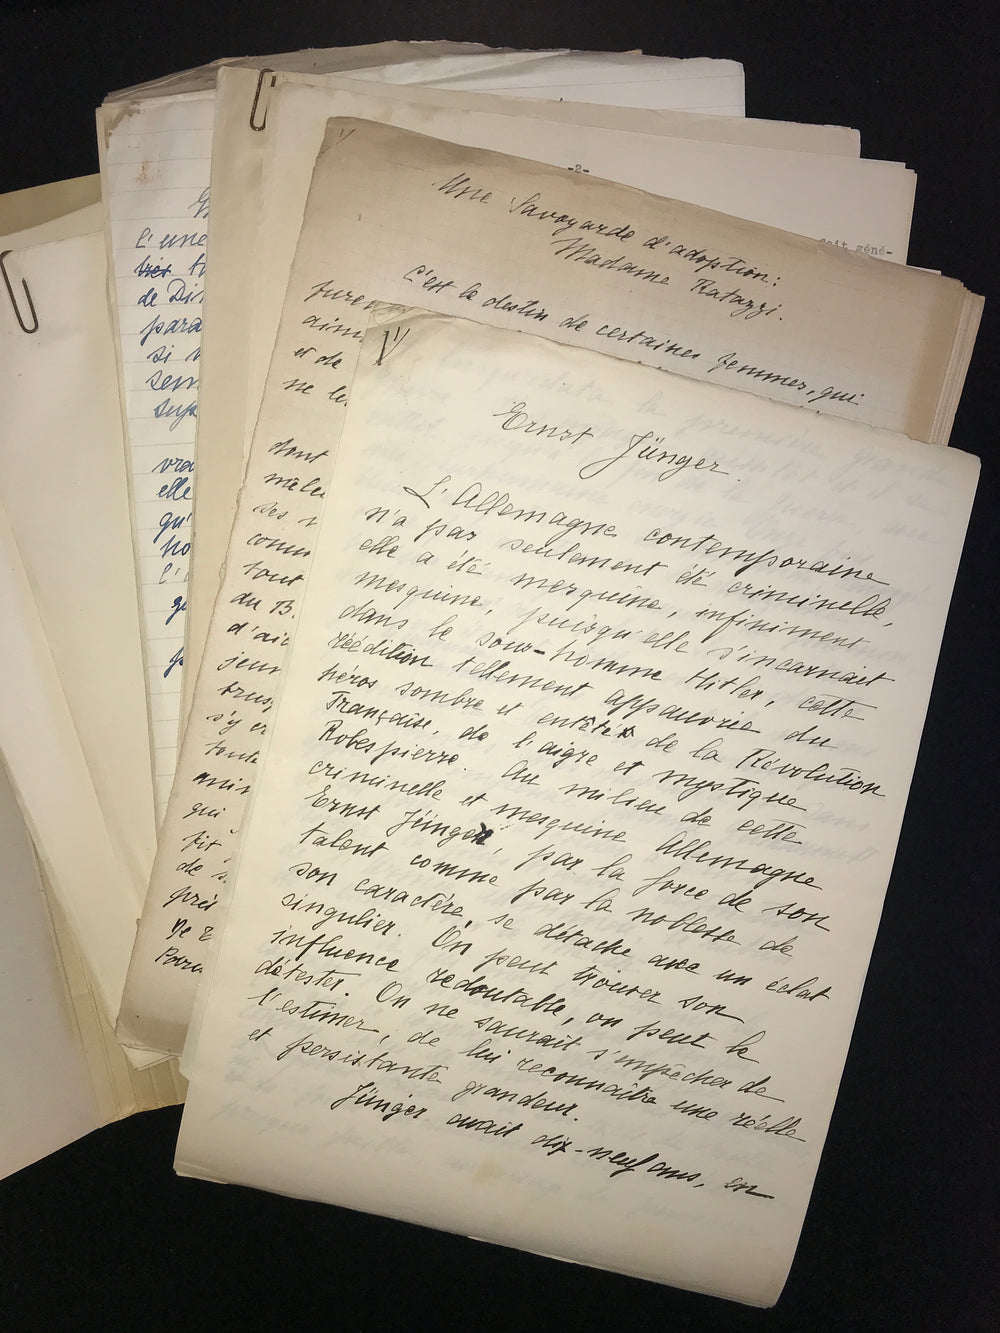 -2-
fait géné-
Une Savoyarde d'adoption:
Madame Ratazzi.
C'est le destin de certaines femmes, qui
furen
aim
et de
ne le
dont
mêle
ses
comm
tout
du 13.
d'ai
jeun
trus
s'y e
tout
qui
fit
de s
prés
l'une
de Di
para
si
sem
sup
vra
elle
qu'
ho
l'
1/
Ernst Jünger.
L'Allemagne contemporaine
n'a pas seulement été criminelle,
elle a été mesquine, infiniment
mesquine, puisqu'elle s'incarnait
dans le sous-homme Hitler, cette
réédition tellement appauvrie du
héros sombre et entêté de la Révolution
Française, de l'aigre et mystique
Robespierre. Au milieu de cette
criminelle et mesquine Allemagne
Ernst Jünger, par la force de son
talent comme par la noblesse de
son caractère, se détache avec un éclat
singulier. On peut trouver son
influence redoutable, on peut le
détester. On ne saurait s'empêcher de
l'estimer, de lui reconnaître une réelle
et persistante grandeur.
Jünger avait dix-neuf ans, en